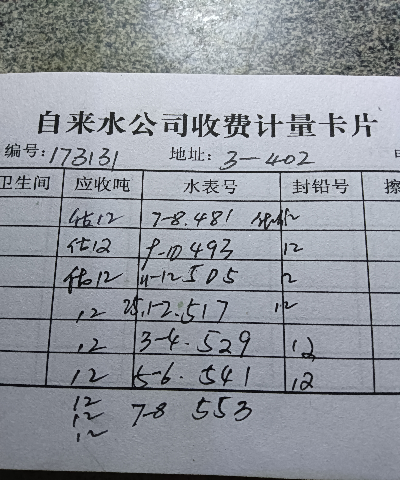 自来水公司收费计量卡片
编号:173131 地址: 3-402
卫生间 应收吨 水表号 封铅号
估12 7-8.481 估12
估12 9-10 493 12
估12 11-12.505 12
12 25.1-2.517 12
12 3-4.529 12
12 5-6.541 12
12
12 7-8 553
12